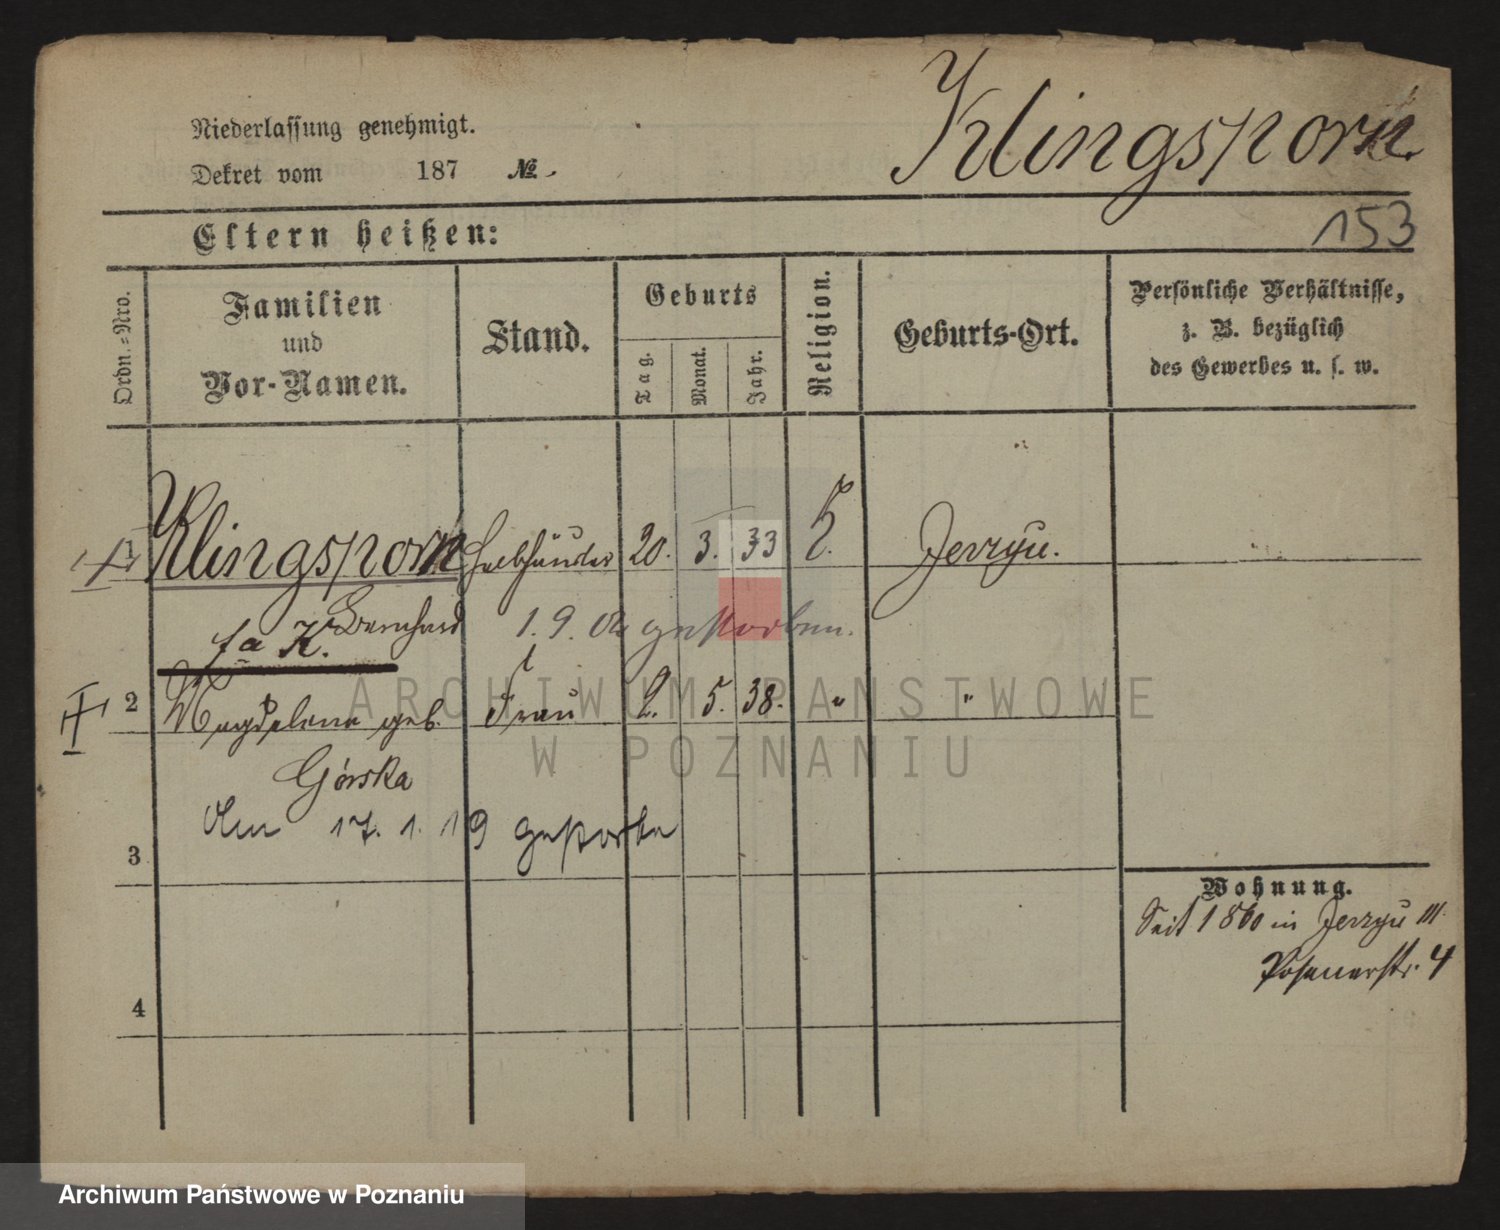 Klingsporn.
Niederlassung genehmigt.
Dekret vom 187 No.
153
Eltern heißen:
Ordn.-Nro.
Familien und Vor-Namen.
Stand.
Geburts
Tag.
Monat.
Jahr.
Religion.
Geburts-Ort.
Persönliche Verhältnisse,
z. B. bezüglich
des Gewerbes u. s. w.
1 Klingsporn 20. 3. 33 Jerzyu.
Bernhard 1. 9. gestorben.
K.
2 Magdalena geb. Frau 2. 5. 38. " "
Górska
Am 17. 1. 19 gestorben
3
Wohnung.
Seit 1860 in Jerzyu III.
Posenerstr. 4
4
ARCHIWUM PAŃSTWOWE
W POZNANIU
Archiwum Państwowe w Poznaniu